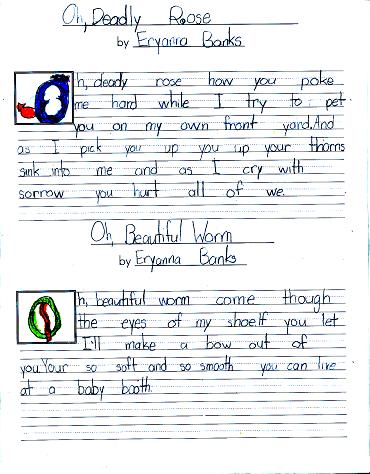 Oh, Deadly Roose
by Eryanna Banks
Oh, deadly rose how you poke
me hard while I try to pet
you on my own front yard. And
as I pick you up you up your thorns
sink into me and as I cry with
sorrow you hurt all of we.
Oh, Beautiful Worm
by Eryanna Banks
Oh, beautiful worm come though
the eyes of my shoe If you let
I'll make a bow out of
you Your so soft and so smooth you can live
at a baby booth.